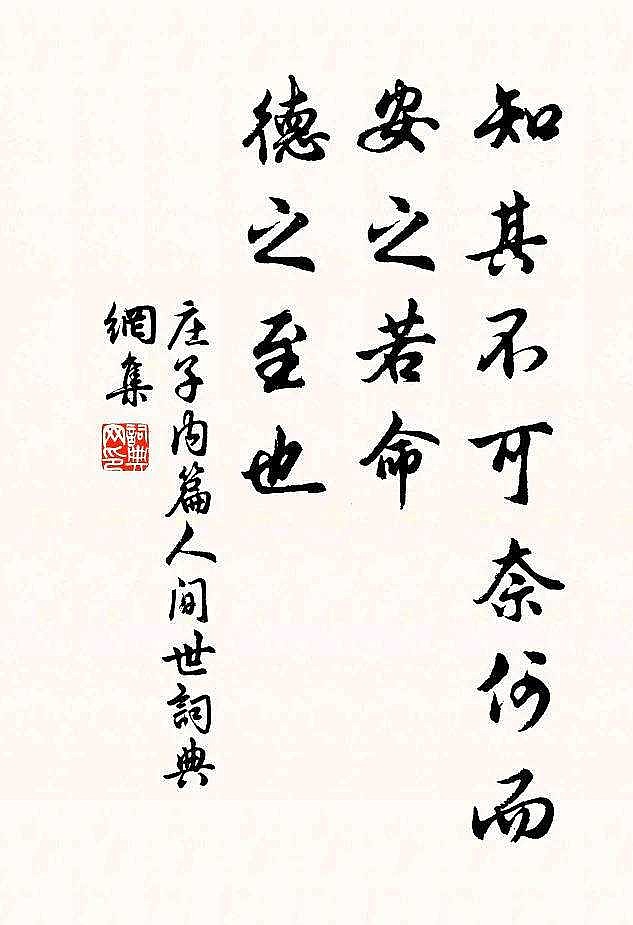 知其不可奈何而
安之若命
德之至也
庄子内篇人间世詞典
網集
詞典网印